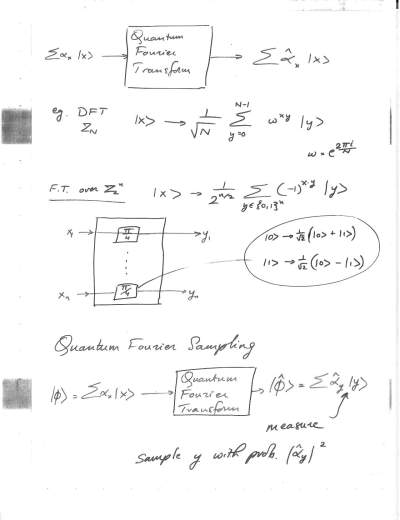 Σαₓ |x> → Quantum Fourier Transform → Σ α̂ₓ |x>
eg. DFT Z_N |x> → 1/√N Σ_{y=0}^{N-1} ω^{xy} |y>
ω = e^{2πi/N}
F.T. over Z₂ⁿ |x> → 1/2^{n/2} Σ_{y∈{0,1}ⁿ} (-1)^{x·y} |y>
x₁ → π/4 → y₁
|0> → 1/√2 (|0> + |1>)
|1> → 1/√2 (|0> - |1>)
xₙ → π/4 → yₙ
Quantum Fourier Sampling
|ϕ> = Σαₓ |x> → Quantum Fourier Transform → |ϕ̂> = Σ α̂_y |y>
measure
sample y with prob. |α̂_y|²